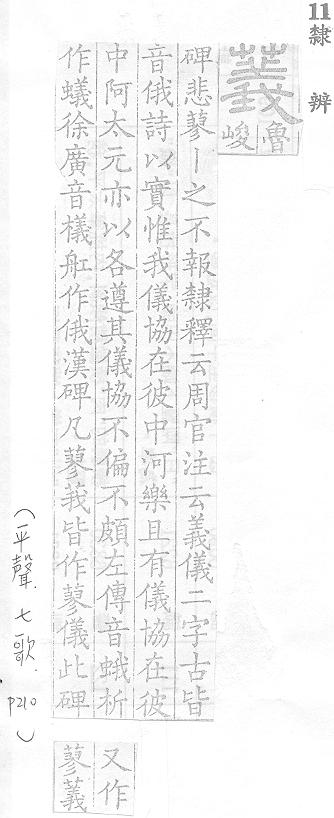 11隸辨
䕏
魯
峻
碑悲蓼丨之不報隸釋云周官注云義儀二字古皆
音俄詩以實惟我儀協在彼中河樂且有儀協在彼
中阿太元亦以各遵其儀協不偏不頗左傳音蛾析
作蟻徐廣音檥舡作俄漢碑凡蓼莪皆作蓼儀此碑
又作
蓼䕏
(平聲.七歌.p210)